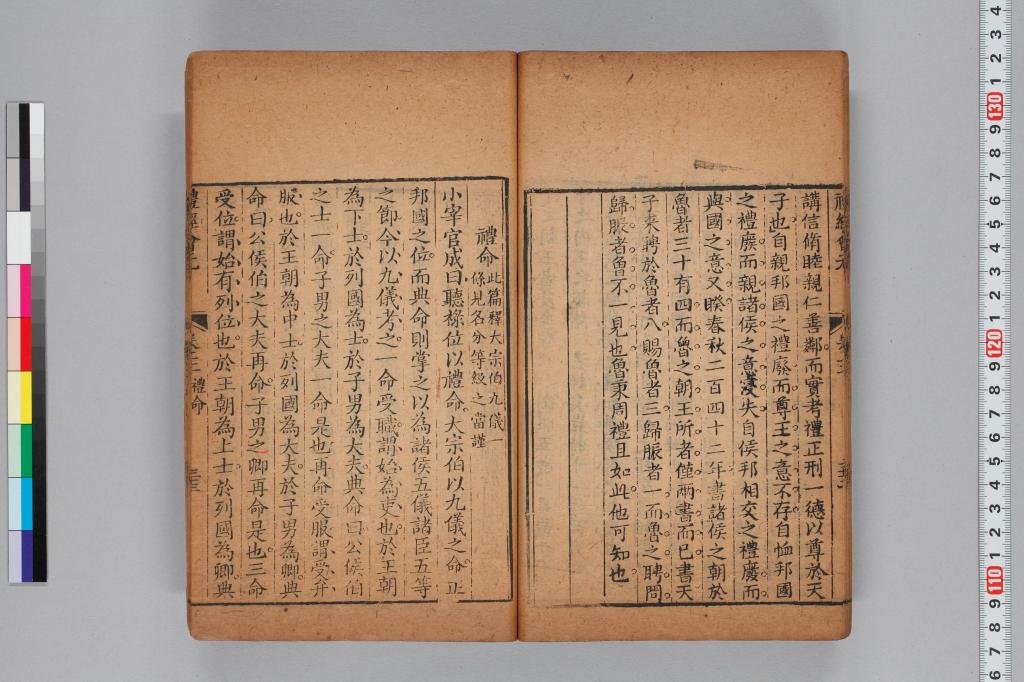 講信脩睦親仁善鄰而實考禮正刑一德以尊於天
子也自親邦國之禮廢而尊王之意不存自恤邦國
之禮廢而親諸侯之意寖失自侯邦相交之禮廢而
與國之意又睽春秋二百四十二年書諸侯之朝於
魯者三十有四而魯之朝王所者僅兩書而已書天
子來聘於魯者八賜魯者三歸脤者一而魯之聘問
歸脤者魯不一見也魯秉周禮且如此他可知也
禮命
此篇釋大宗伯九儀一
條見名分等級之當謹
小宰官成曰聽祿位以禮命大宗伯以九儀之命正
邦國之位而典命則掌之以為諸侯五儀諸臣五等
之節今以九儀考之一命受職謂始為吏也於王朝
為下士於列國為士於子男為大夫典命曰公侯伯
之士一命子男之大夫一命是也再命受服謂受弁
服也於王朝為中士於列國為大夫於子男為卿典
命曰公侯伯之大夫再命子男之卿再命是也三命
受位謂始有列位也於王朝為上士於列國為卿典
禮經會元
卷三 禮命
三三